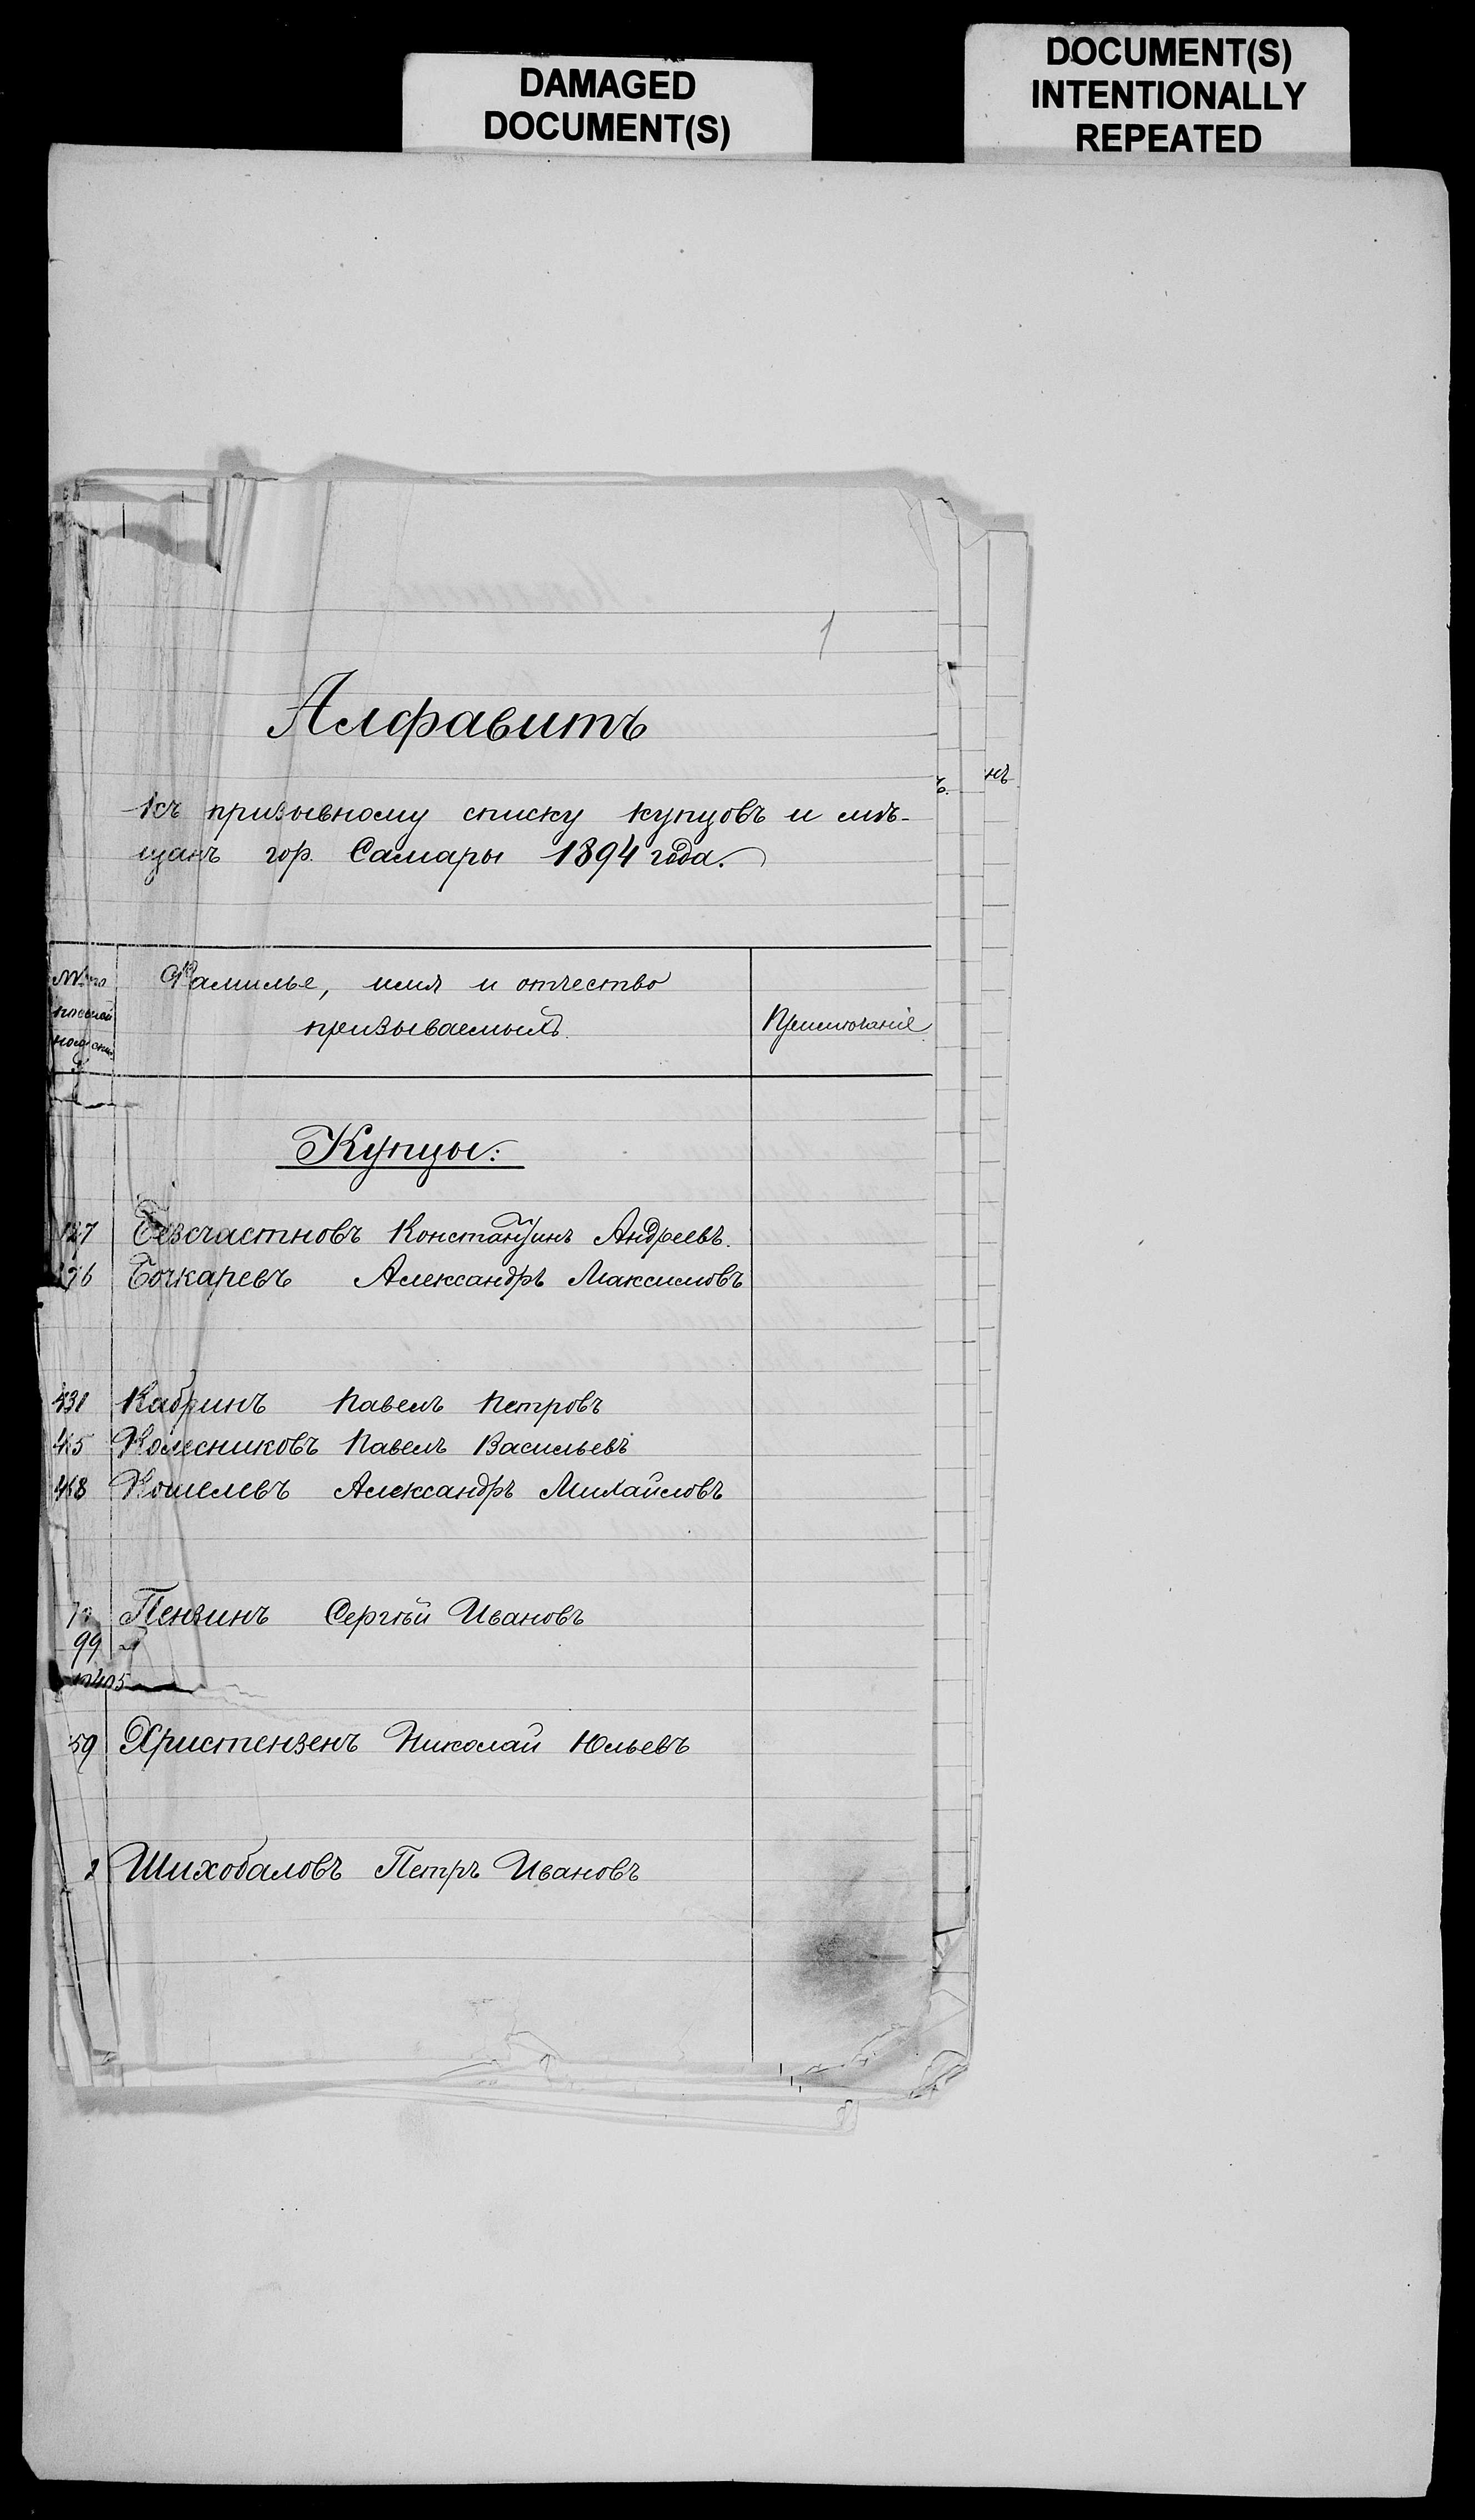 DAMAGED
DOCUMENT(S)
DOCUMENT(S)
INTENTIONALLY
REPEATED
1
Алфавитъ
Къ призывному списку купцовъ и мѣ-
щанъ гор. Самары 1894 года.
Фамилье, имя и отчество
призываемыхъ.
Примѣчаніе
Купцы:
127 Безсчастновъ Константинъ Андреевъ.
Бочкаревъ Александръ Максимовъ
431 Кабринъ Павелъ Петровъ
Колесниковъ Павелъ Васильевъ
468 Кошелевъ Александръ Михайловъ
Пензинъ Сергѣй Ивановъ
99
59 Христензенъ Николай Юльевъ
2 Шихобаловъ Петръ Ивановъ